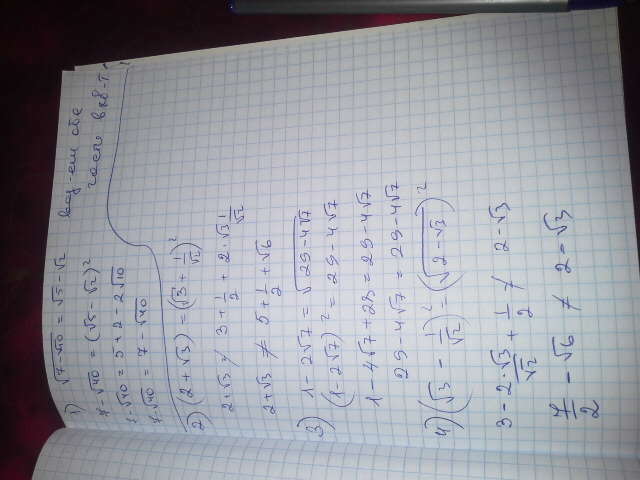 1) √7-√40 = √5-√2 воз-ем обе
части в кв-т
7-√40 = (√5-√2)²
7-√40 = 5+2-2√10
7-√40 = 7-√40
2) (2+√3) = (√3+1/√2)²
2+√3 ≠ 3+1/2+2·√3 1/√2
2+√3 ≠ 5+1/2+√6
3) 1-2√7 = √29-4√7
(1-2√7)² = 29-4√7
1-4√7+28 = 29-4√7
29-4√7 = 29-4√7
4) (√3-1/√2)² = (√2-√3)²
3-2·√3/√2+1/2 ≠ 2-√3
7/2-√6 ≠ 2-√3